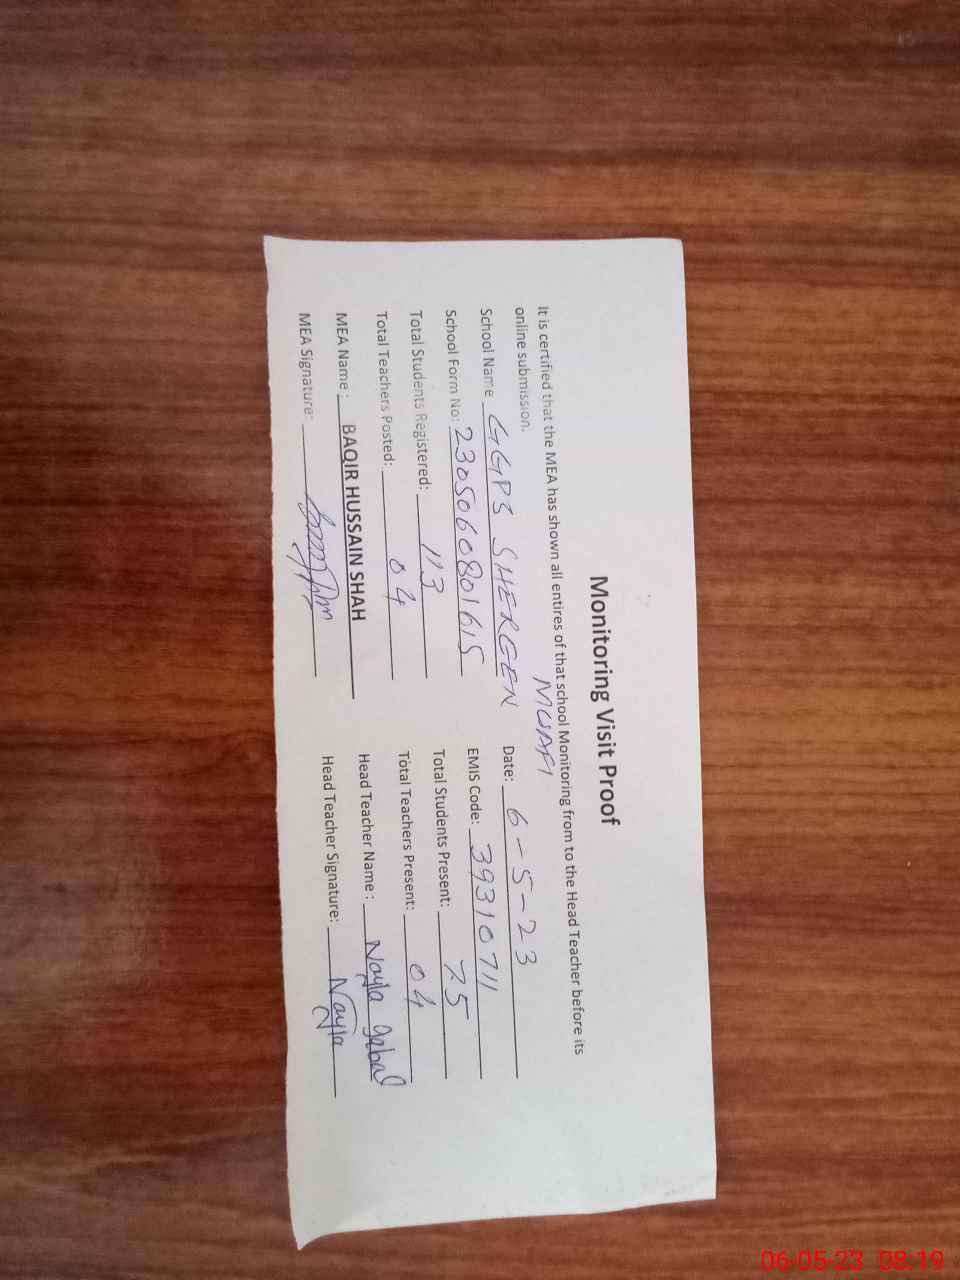 Monitoring Visit Proof
It is certified that the MEA has shown all entires of that school Monitoring from to the Head Teacher before its
online submission.
MUAFI
School Name GGPS SHERGEN Date: 6-5-23
School Form No: 2305060801615 EMIS Code: 39310711
Total Students Registered: 113 Total Students Present: 75
Total Teachers Posted: 04 Total Teachers Present: 04
MEA Name : BAQIR HUSSAIN SHAH Head Teacher Name : Nayla Iqbal
MEA Signature: Head Teacher Signature: Nayla
06-05-23 08:19